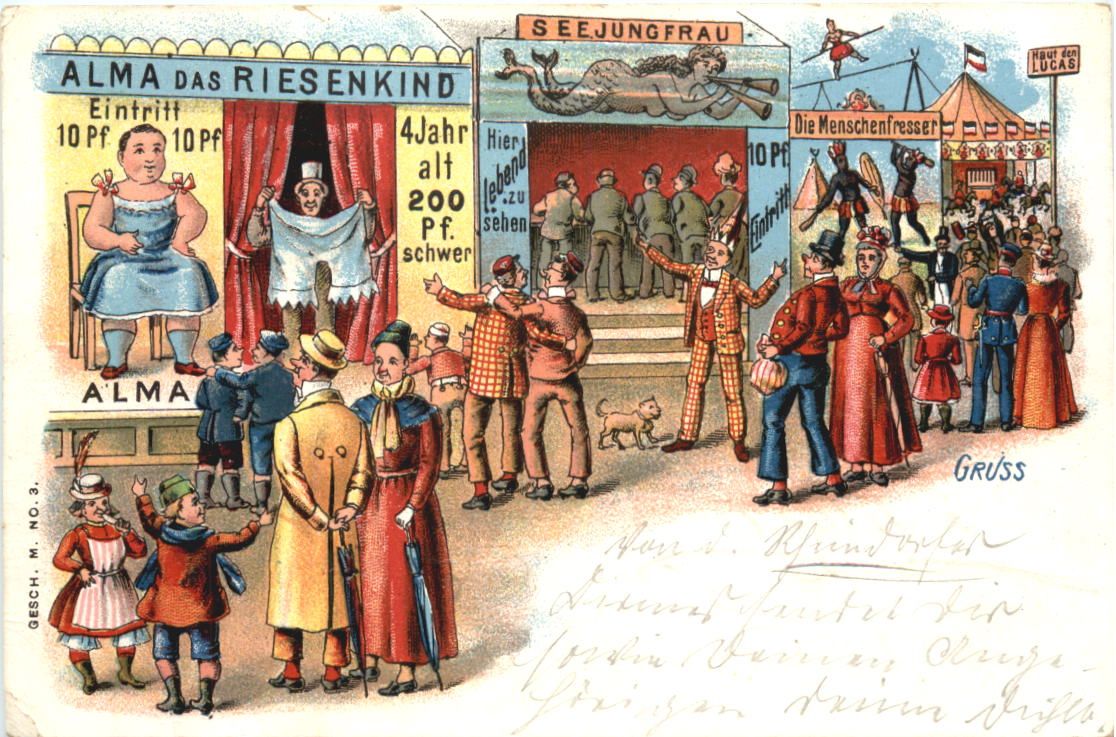 ALMA DAS RIESENKIND
Eintritt
10 Pf 10 Pf
4 Jahr
alt
200
Pf.
schwer
ALMA
SEEJUNGFRAU
Hier
lebend
zu
sehen
10 Pf
Eintritt
Die Menschenfresser
Haut den
LUCAS
GRUSS
GESCH. M. NO. 3.
Von d.
sendet Dir
sowie Deinen Ange-
hörigen Deine